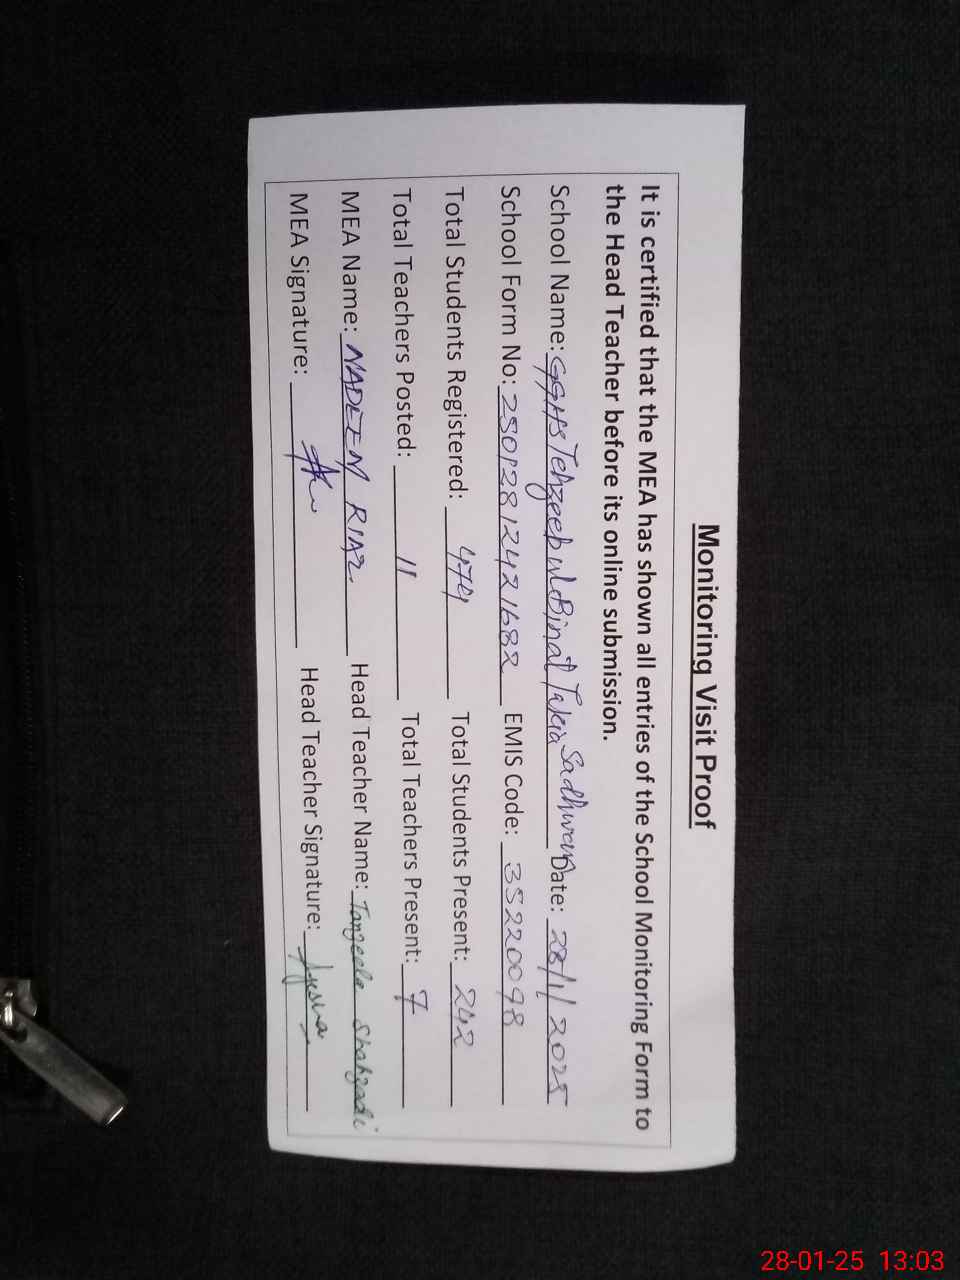 Monitoring Visit Proof
It is certified that the MEA has shown all entries of the School Monitoring Form to
the Head Teacher before its online submission.
School Name: GGHS Tehzeeb ul Binat Takia Sadhwan Date: 28/1/2025
School Form No: 25012812421682 EMIS Code: 35220098
Total Students Registered: Total Students Present: 242
Total Teachers Posted: 11 Total Teachers Present: 7
MEA Name: NADEEM RIAZ Head Teacher Name: Tanzeela Shahzadi
MEA Signature: Head Teacher Signature:
28-01-25 13:03